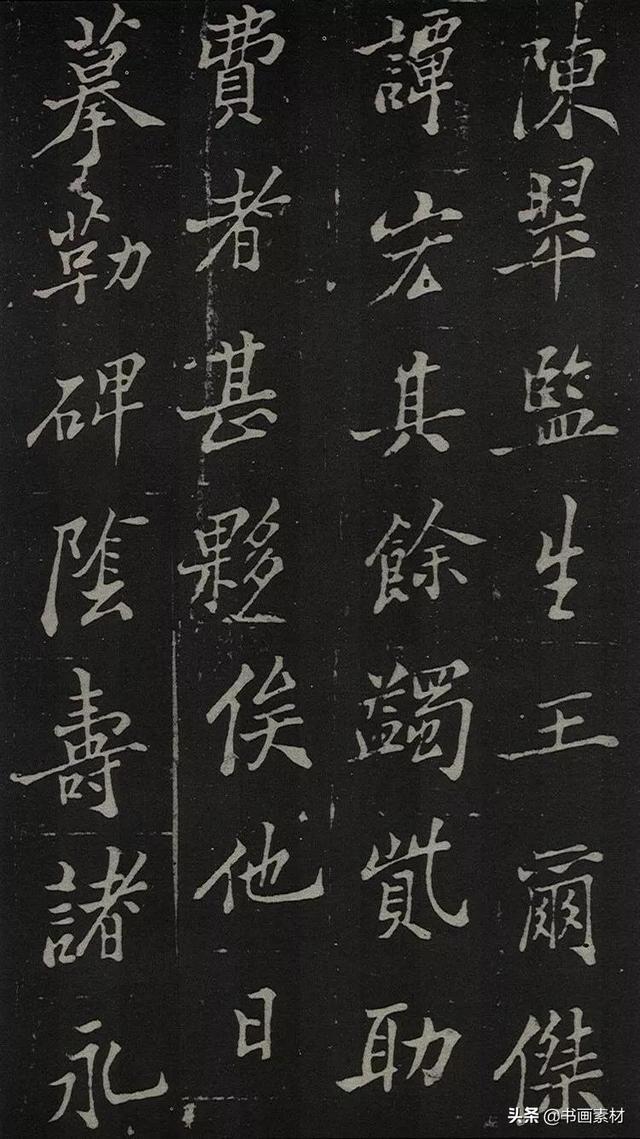 陳翠監生王爾傑
譚宏其餘蠲貲助
費者甚夥俟他日
摹勒碑陰壽諸永
头条 @书画素材